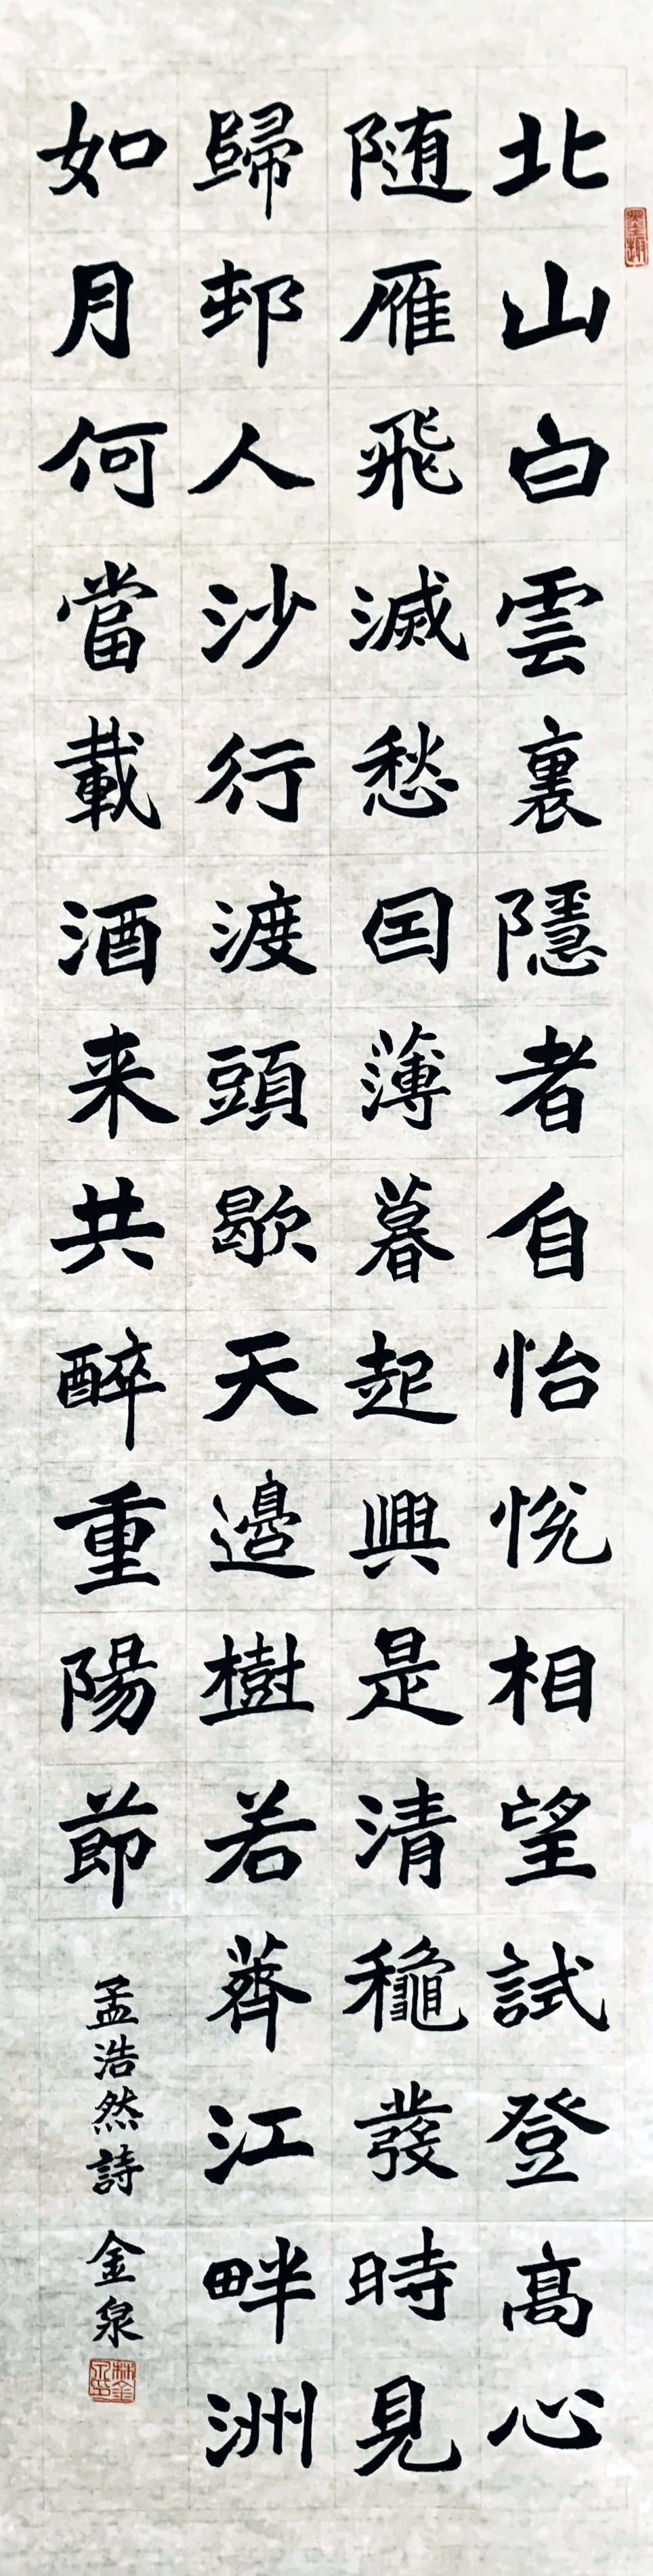 北山白雲裏隱者自怡悅相望試登高心
随雁飛滅愁囙薄暮起興是清龝發時見
歸邨人沙行渡頭歇天邊樹若薺江畔洲
如月何當載酒来共醉重陽節
孟浩然詩 金泉
林金泉印